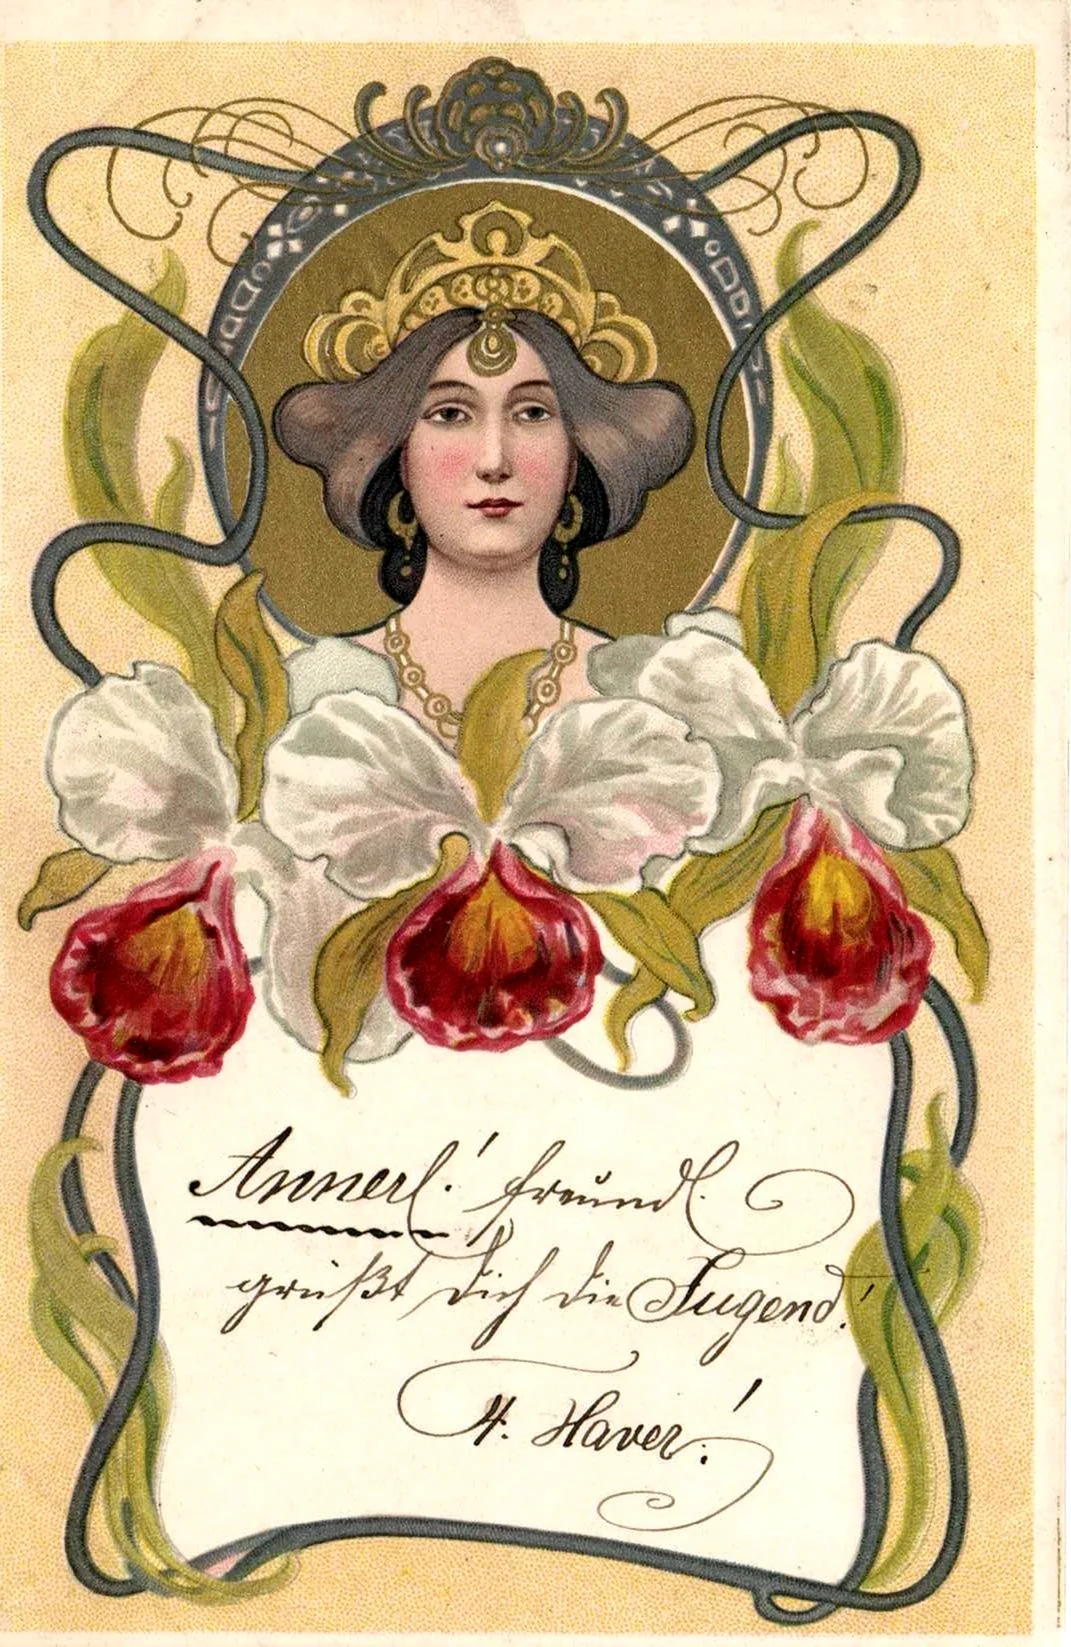 Annerl! freundl.
grüßt Dich die Jugend!
H. Haver!